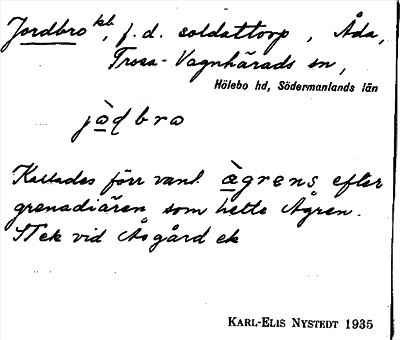 Jordbro kb, f.d. soldattorp, Åda,
Trosa-Vagnhärads sn,
Hölebo hd, Södermanlands län
jo̱ḍbro
Kallades förr vanl. àgrens efter
grenadiären som hette Ågren.
STek vid Åsgård ek
KARL-ELIS NYSTEDT 1935